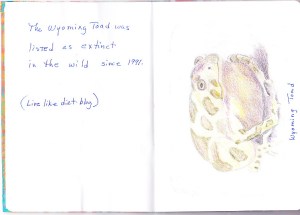 The Wyoming Toad was
listed as extinct
in the wild since 1991.
(Live like dirt blog)
Wyoming Toad